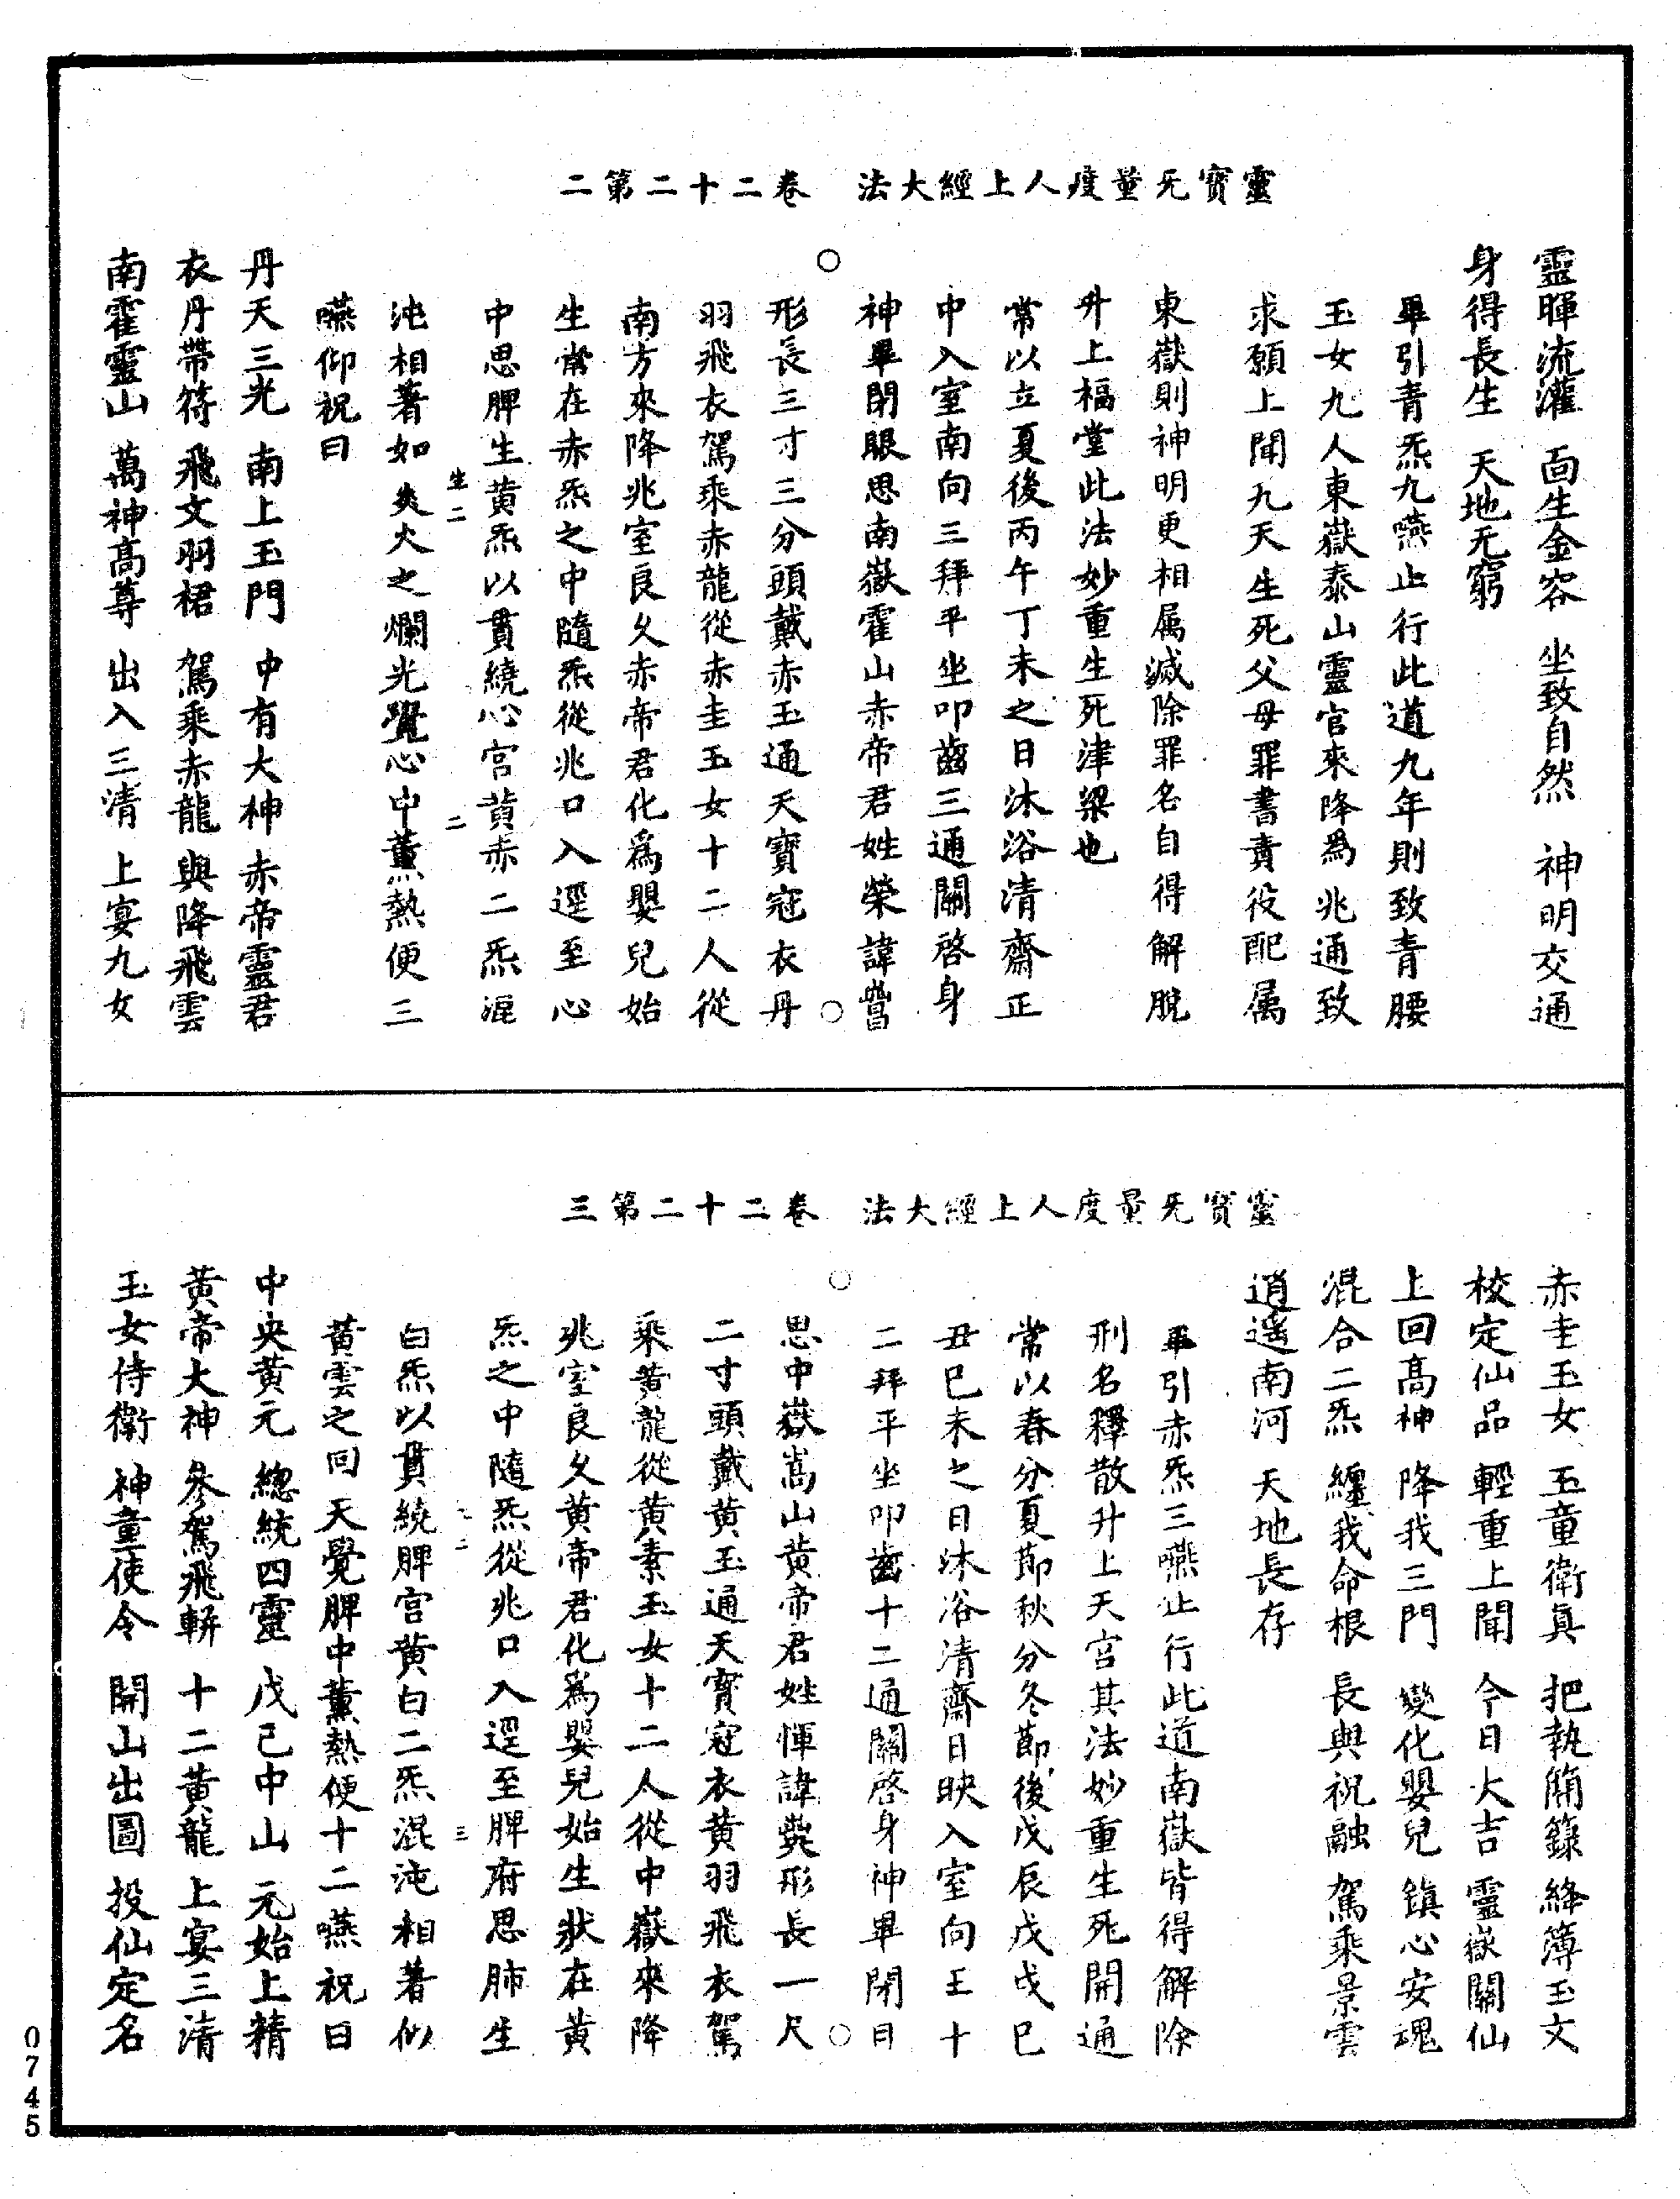 靈寶无量度人上經大法　卷二十二第二
靈暉流灌　面生金容　坐致自然　神明交通
身得長生　天地无窮
畢引青炁九嚥止行此道九年則致青腰
玉女九人東嶽泰山靈官來降為兆通致
求願上聞九天生死父母罪書責役配属
東嶽則神明更相属滅除罪名自得解脫
升上福堂此法妙重生死津梁也
常以立夏後丙午丁未之日沐浴清齋正
中入室南向三拜平坐叩齒三通關啓身
神畢閉眼思南嶽霍山赤帝君姓榮諱
形長三寸三分頭戴赤玉通天寶冠衣丹
羽飛衣駕乘赤龍從赤圭玉女十二人從
南方來降兆室良久赤帝君化爲嬰兒始
生常在赤炁之中隨炁從兆口入逕至心
中思脾生黃炁以貫繞心宮黃赤二炁混
沌相著如炎火之爛光覺心中薰熱便三
嚥仰祝曰
丹天三光　南上玉門　中有大神　赤帝靈君
衣丹帶符　飛文羽裙　駕乘赤龍　與降飛雲
南霍靈山　萬神髙尊　出入三清　上宴九女
靈寶无量度人上經大法　卷二十二第三
赤圭玉女　玉童衛真　把執簡籙　絳簿玉文
校定仙品　輕重上聞　今日大吉　靈嶽關仙
上回髙神　降我三門　變化嬰兒　鎮心安魂
混合二炁　纏我命根　長與祝融　駕乘景雲
逍遙南河　天地長存
畢引赤炁三嚥止行此道南嶽皆得解除
刑名釋散升上天宮其法妙重生死開通
常以春分夏節秋分冬節後戊辰戊戌己
丑己未之日沐浴清齋日映入室向王十
二拜平坐叩齒十二通關啓身神畢閉目
思中嶽嵩山黃帝君姓惲諱形長一尺
二寸頭戴黃玉通天寶冠衣黃羽飛衣駕
乘黃龍從黃素玉女十二人從中嶽來降
兆室良久黃帝君化爲嬰兒始生狀在黃
炁之中隨炁從兆口入逕至脾府思肺生
白炁以貫繞脾宮黃白二炁混沌相著似
黃雲之回天覺脾中薰熱便十二嚥祝曰
中央黃元　總統四靈　戊己中山　元始上精
黃帝大神　參駕飛軿　十二黃龍　上宴三清
玉女侍衛　神童使令　開山出圖　投仙定名
0745